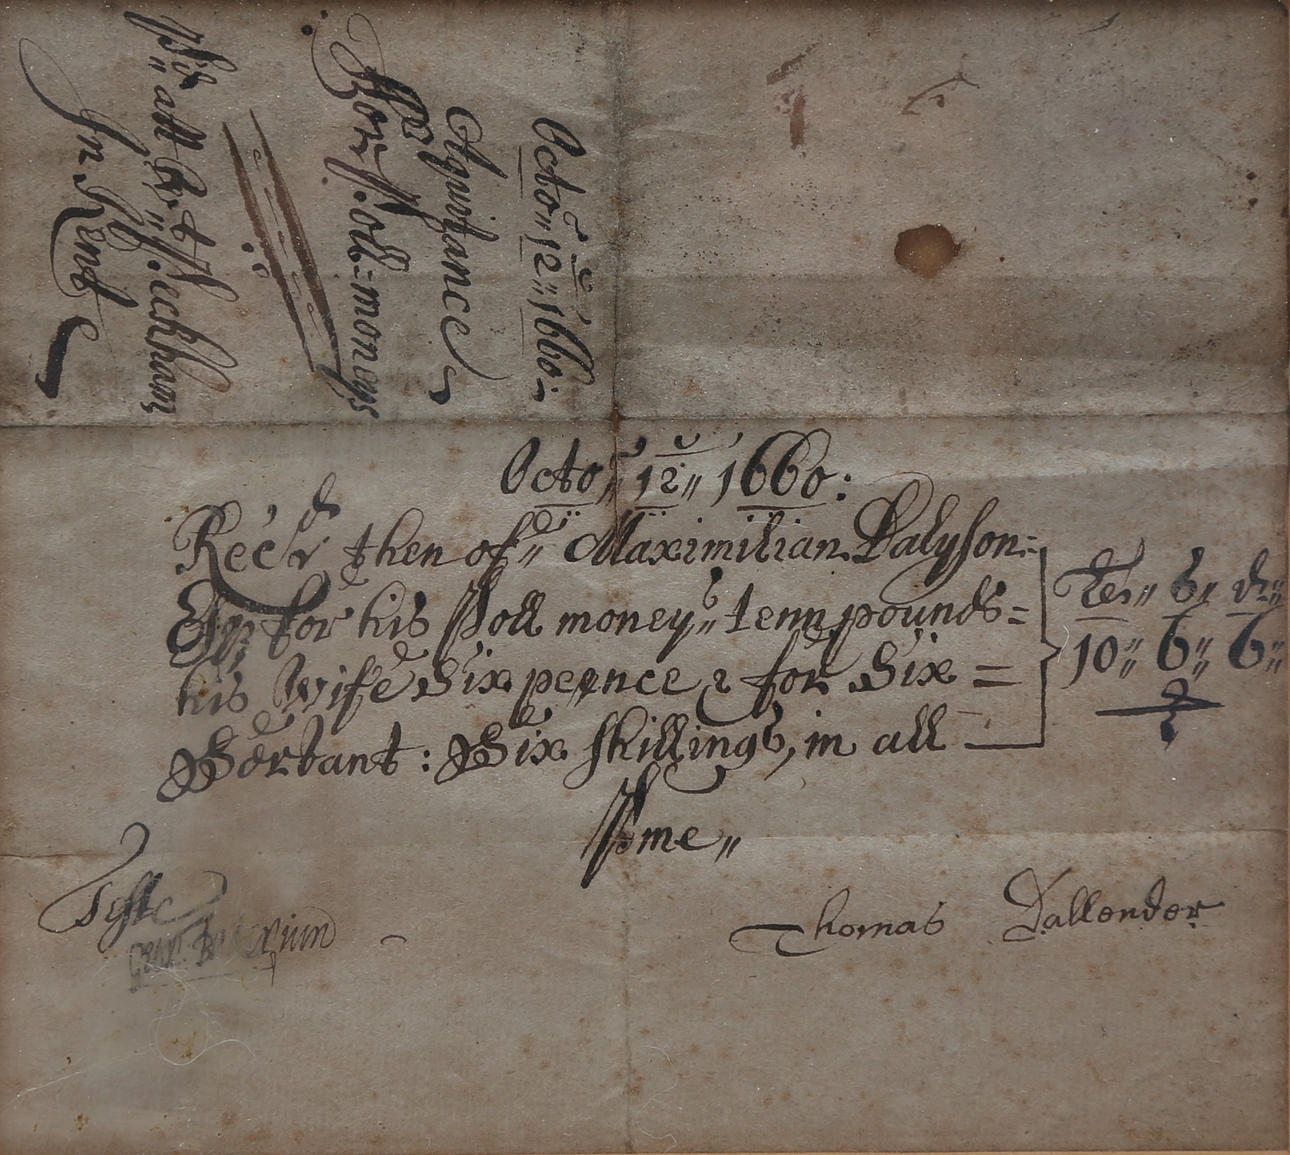 Octo:r 12: 1660:
Aquitance
For Poll=moneys
Pd
att West Peckham
In Kent
Octo:r 12: 1660:
Rec'd then of Maximilian Dalyson=
Esq for his Poll moneys tenn pounds=
his Wife Six pennce & for Six =
Servant: Six shillings, in all
li s d
10 6 6
P me
Teste
Thomas Dallender